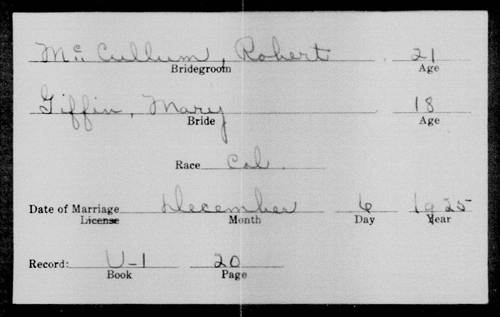 McCullum, Robert 21
Bridegroom Age
Giffin, Mary 18
Bride Age
Race Col.
Date of Marriage December 6 1925
License Month Day Year
Record: U-1 20
Book Page